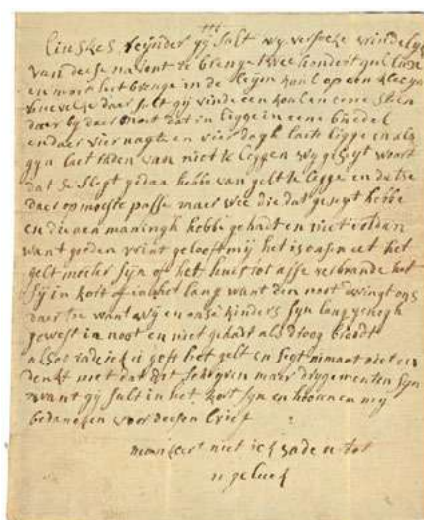 Linskes reijnder gij sult wy versoeke vrindelyk
van deese navont te brenge twee hondert gulden
en moet het brenge in de kleijn koul op een kleijn
daer sult gij vinde een koul en eene steen
daer by daer moet dat in ligge in eene buedel
en daer vier nagte en vier dagh laete ligge en als
gy u laet raden van niet te leggen wy
dat se hebbe van gelt te legge en datse
daer op moeste passe maer wee die dat geseyt hebbe
en die aen maningh hebbe gehadt en niet voldaen
want goeden vrint gelooft mij het is eaven het
gelt moet er sijn of het huis tot asse verbrande het
sij in kort of in het lang want den noot dwingt ons
daer toe want wij en onse kinders syn lang genogh
gewest in noot en niet gehadt als droog broodt
alsoo rade ick u geft het gelt en segt nimant niet en
denkt niet dat dit schryven maer drygementen syn
want gij sult in het kort syn en hooren en mij
bedancken voor deesen brief
niet ick rade u tot
u geluck